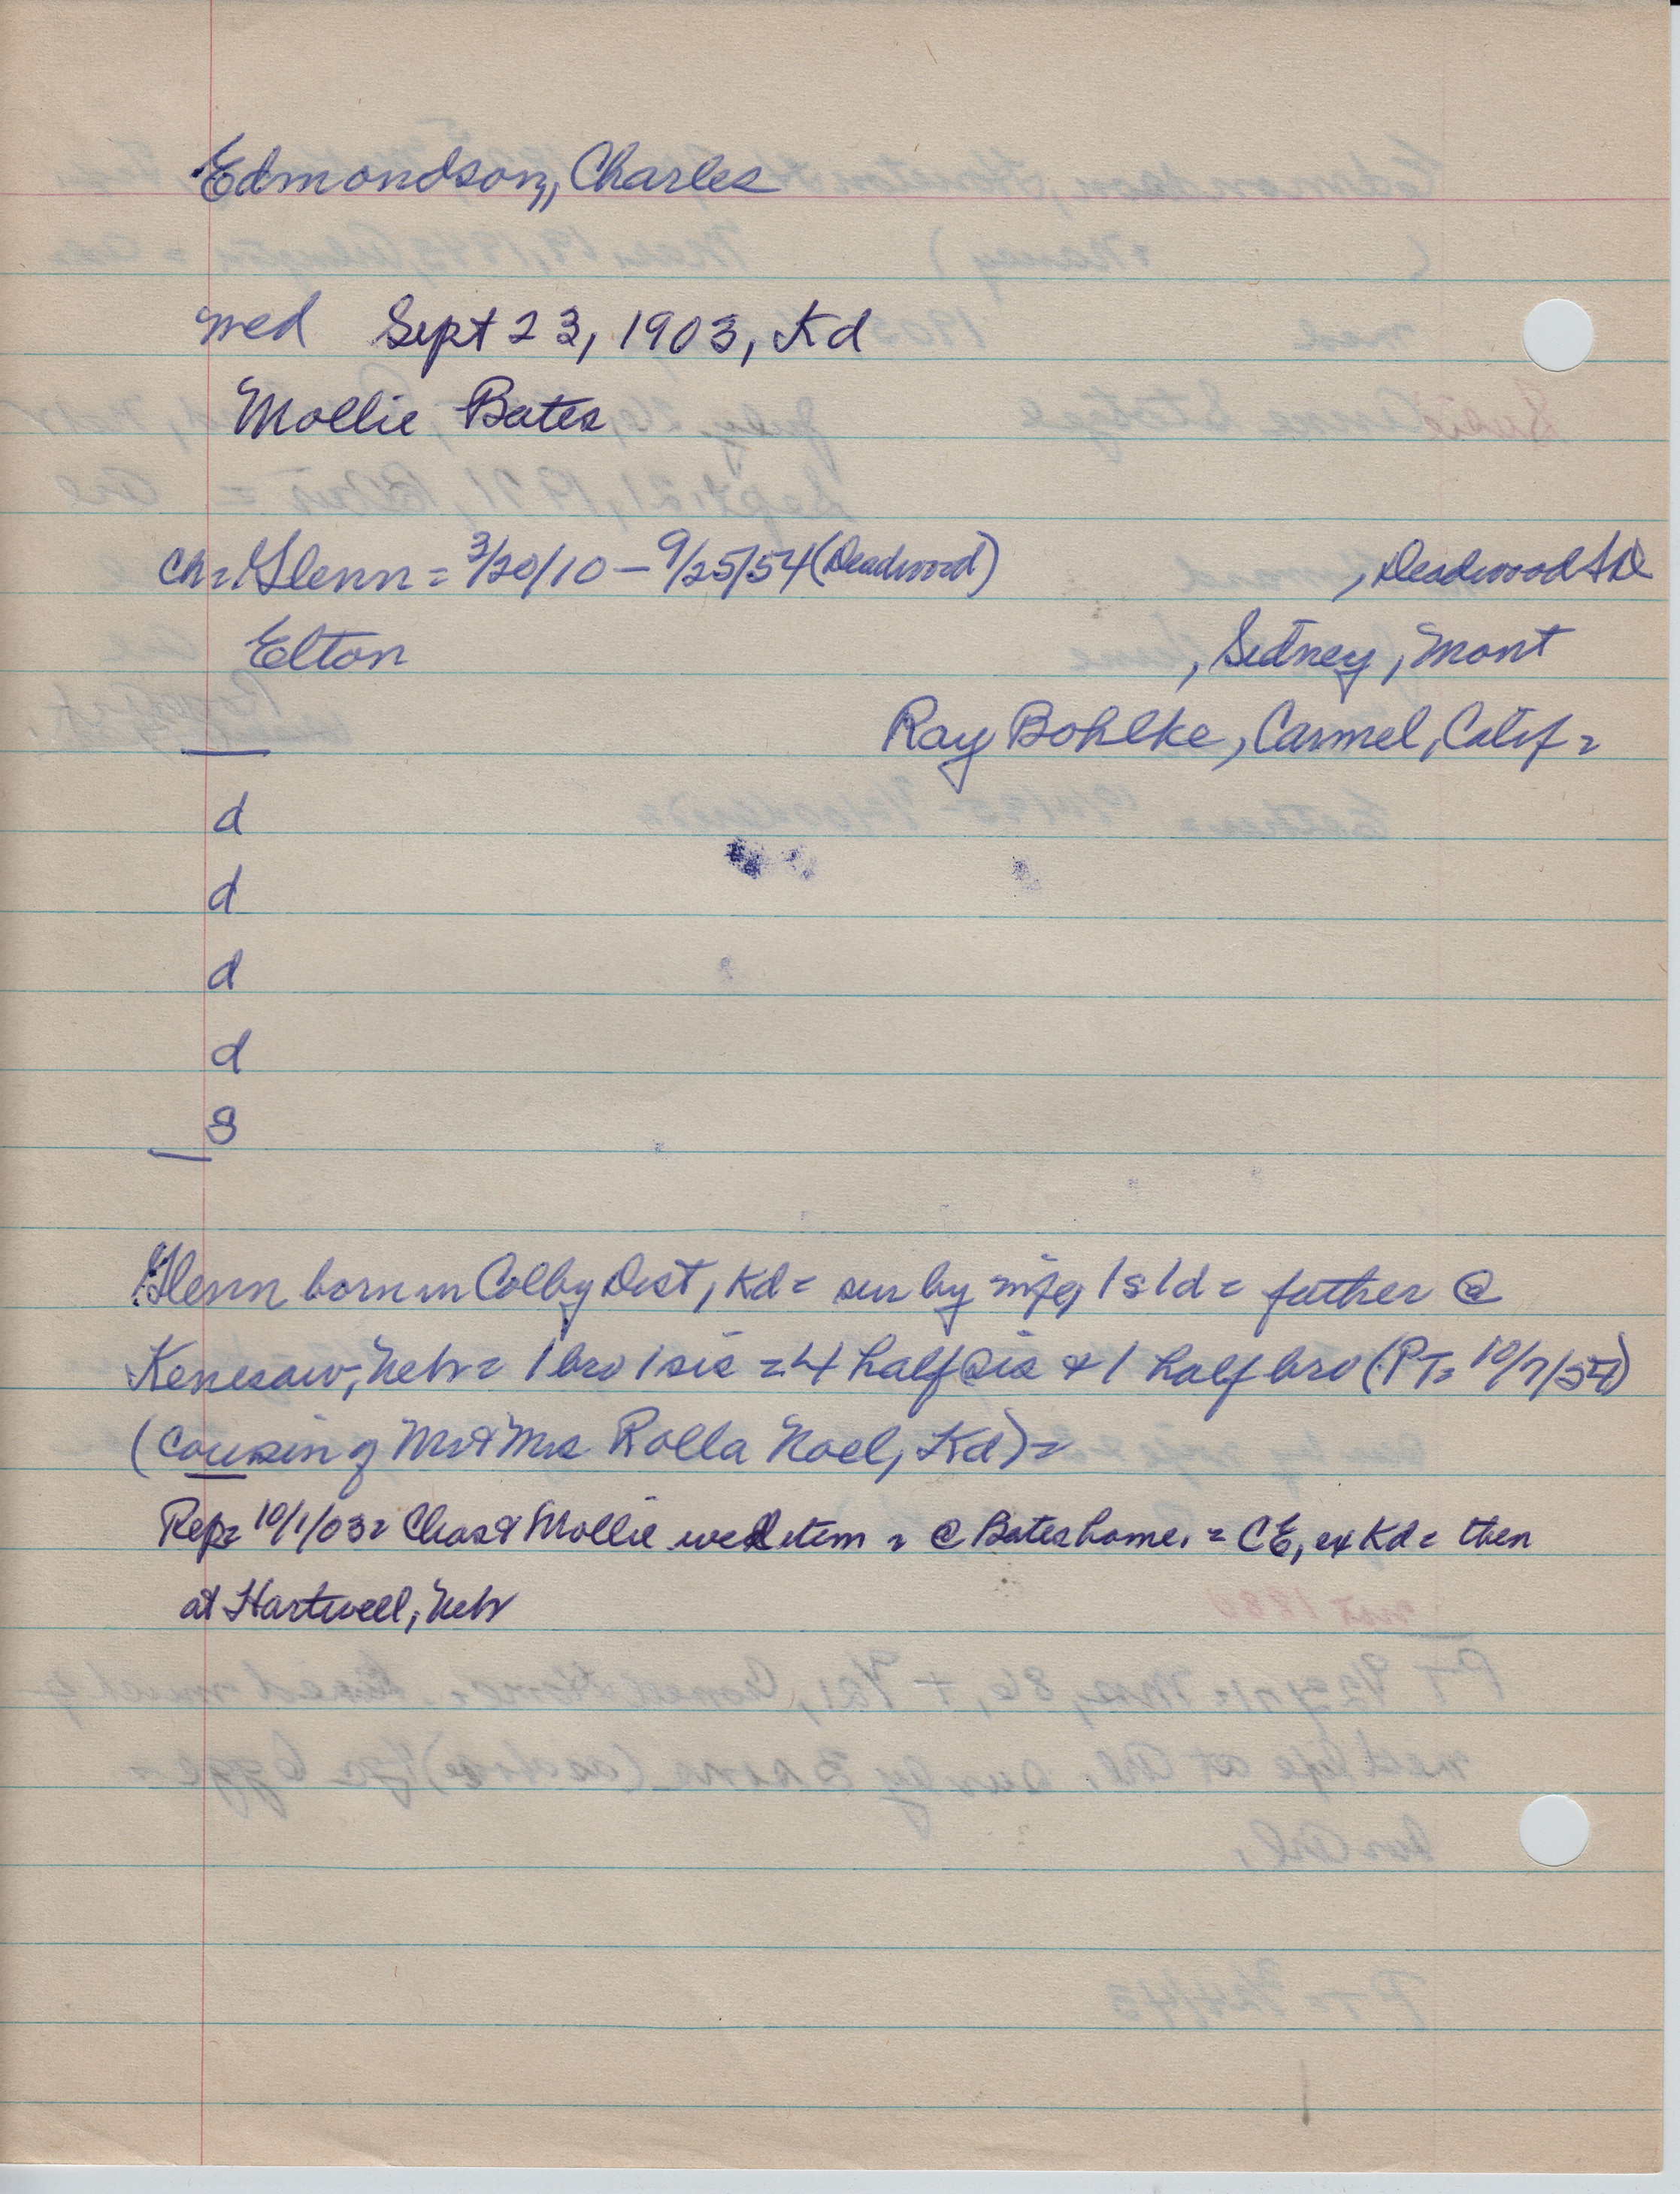 Edmondson, Charles
med Sept 23, 1903, Kd
Mollie Bates
ch= Glenn = 3/20/10 – 9/25/54 (Deadwood) , Deadwood SD
Elton , Sidney, Mont
Ray Bohlke, Carmel, Calif =
d
d
d
d
s
Glenn born in Colby Dist, Kd = sur by wife, 1s 1d = father @
Kenesaw, Nebr = 1 bro 1 sis = 4 half sis & 1 half bro (PT= 10/7/54)
(cousin of Mr & Mrs Rolla Noel, Kd) =
Rep= 10/1/03= Chas & Mollie wed item = @ Bates home. = CE, ex Kd = then
at Hartwell, Nebr